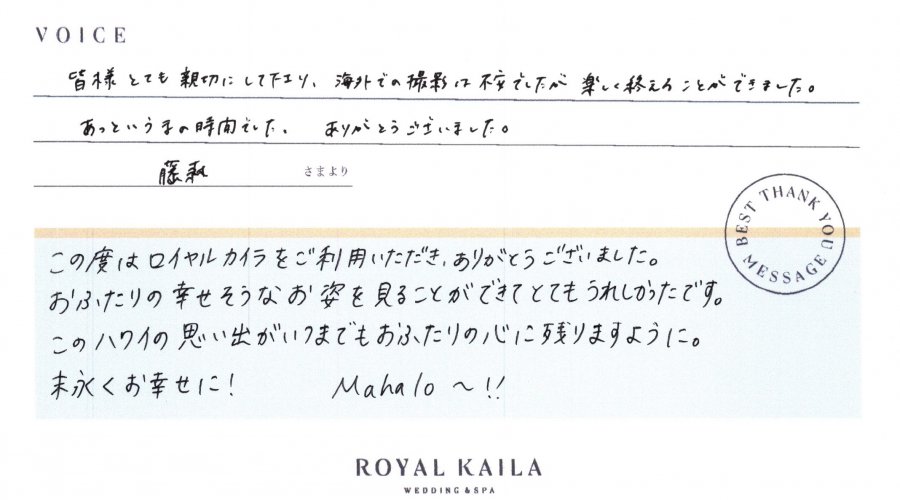 VOICE
皆様とても親切にして下さり、海外での撮影は不安でしたが楽しく終えることができました。
あっというまの時間でした。ありがとうございました。
さまより
BEST THANK YOU MESSAGE
この度はロイヤルカイラをご利用いただき、ありがとうございました。
おふたりの幸せそうなお姿を見ることができてとてもうれしかったです。
このハワイの思い出がいつまでもおふたりの心に残りますように。
末永くお幸せに! Mahalo〜!!
ROYAL KAILA
WEDDING & SPA